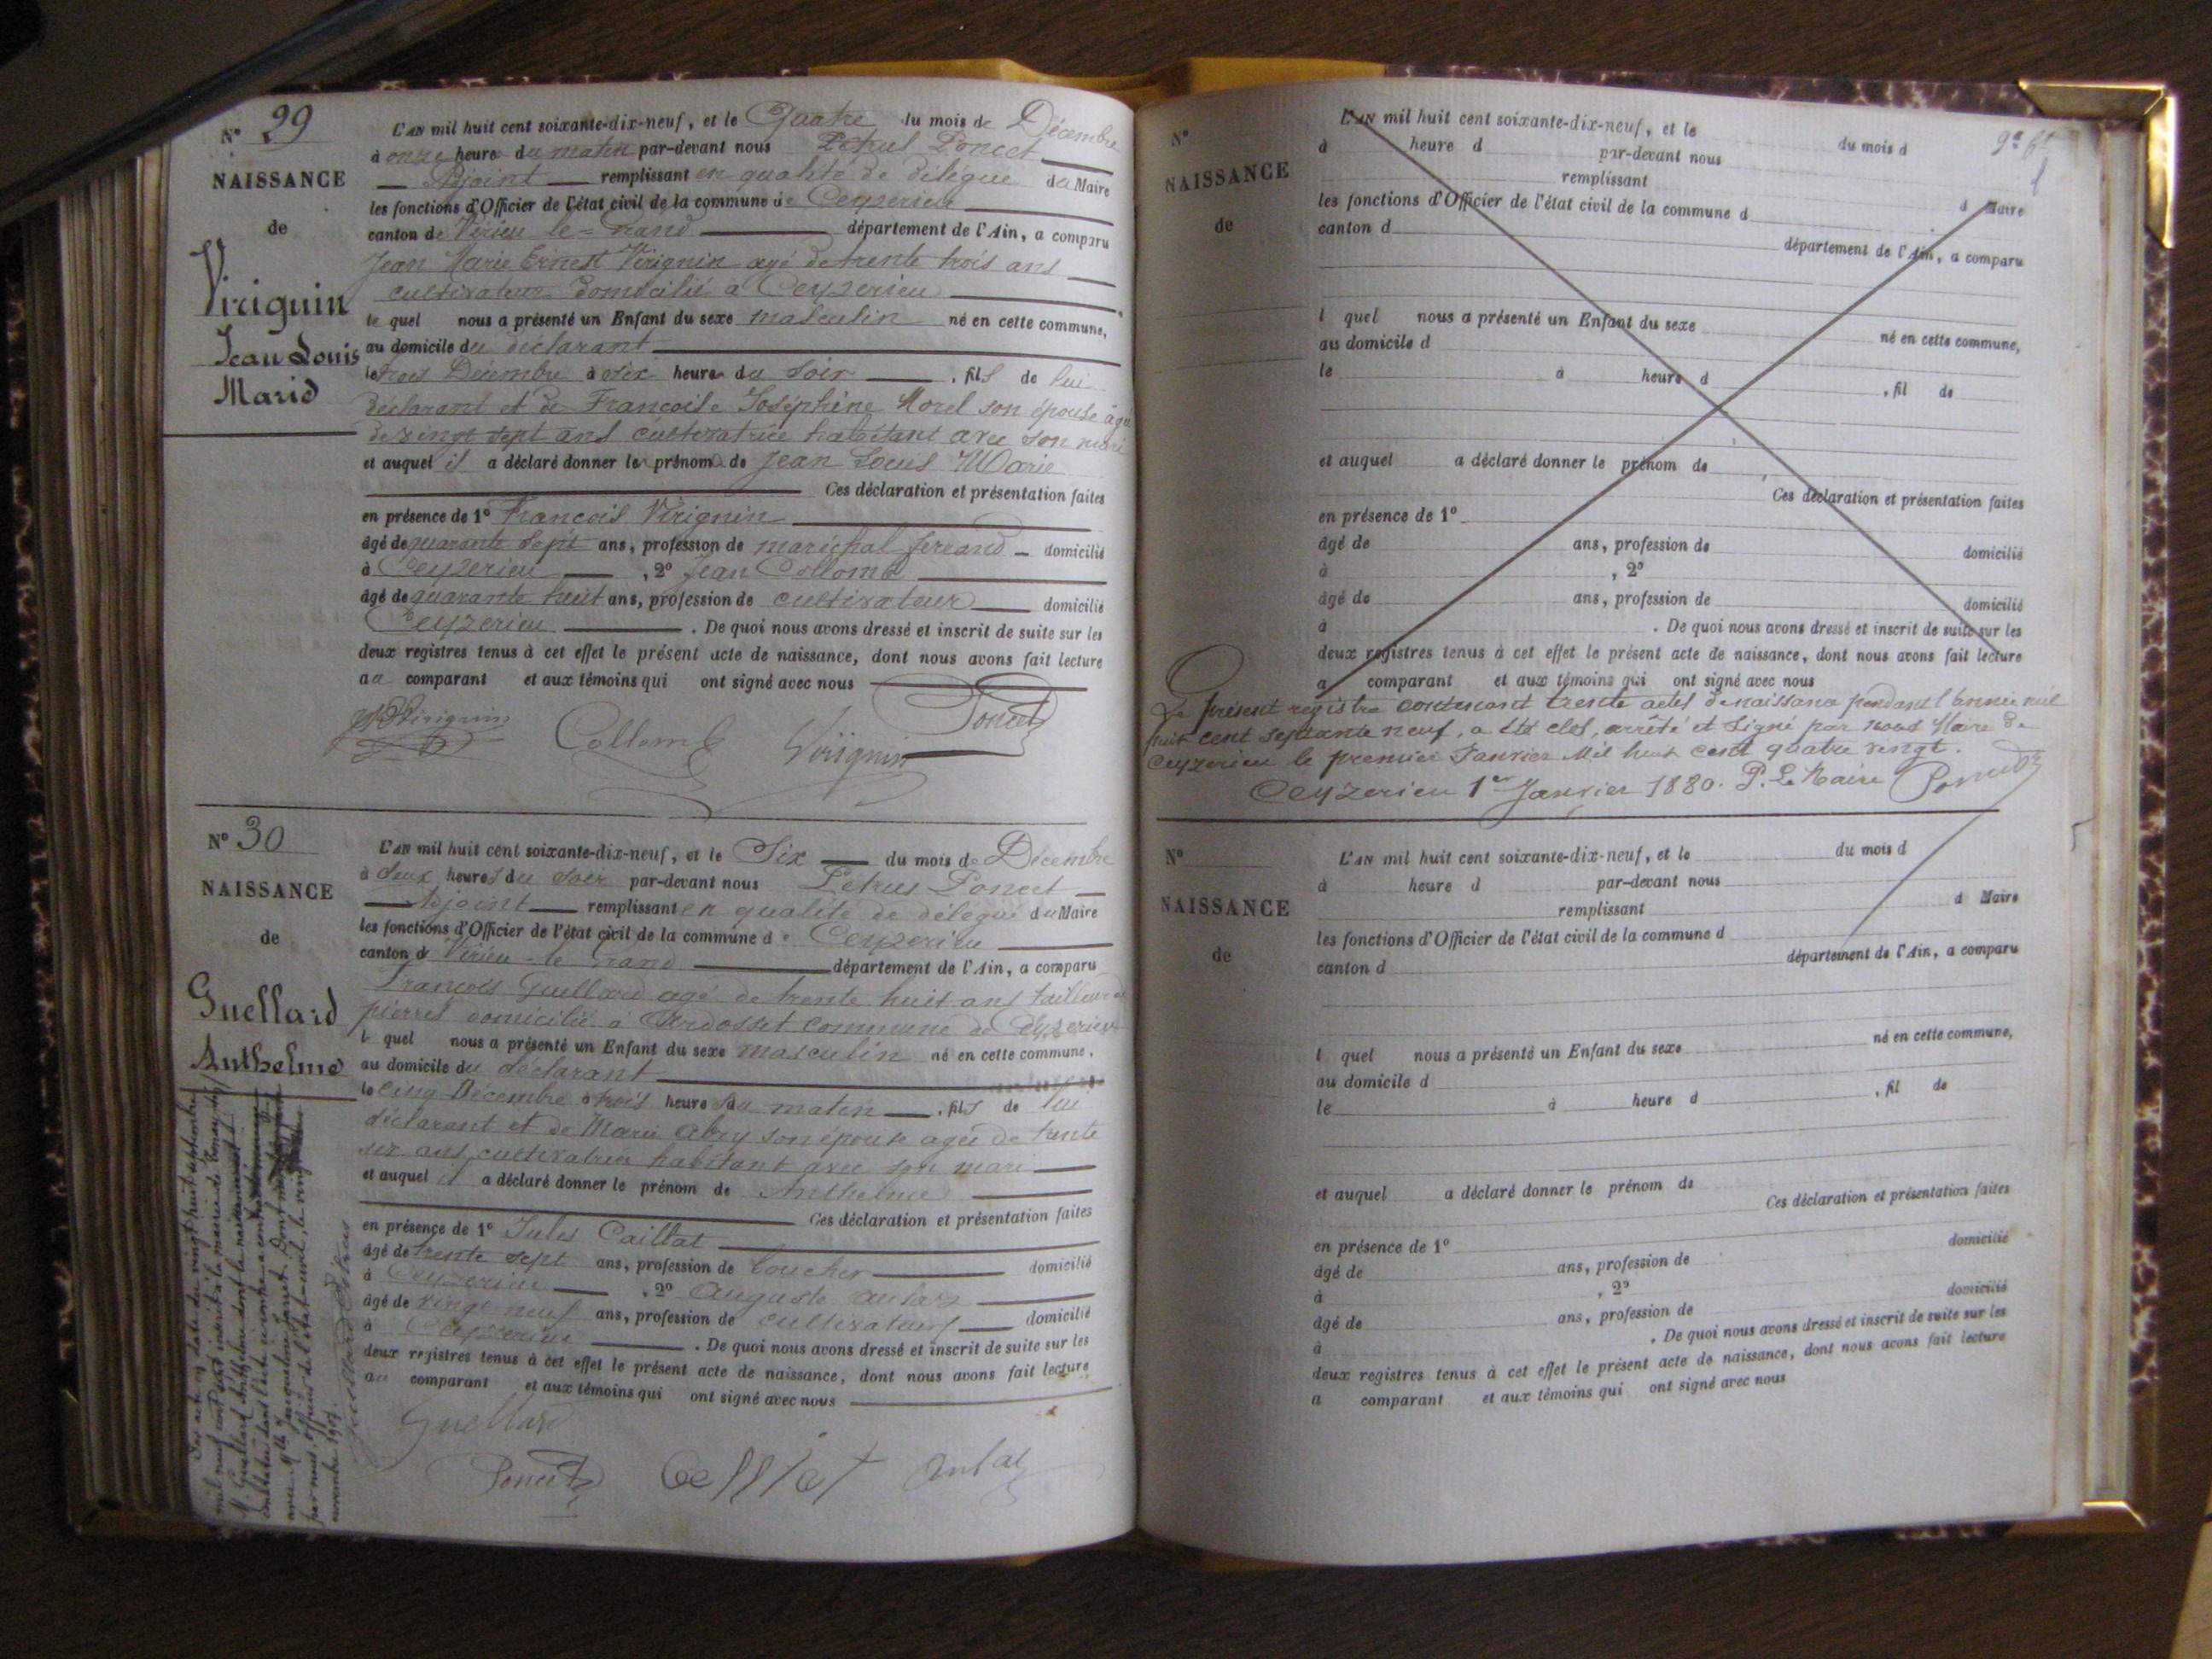 N° 29
NAISSANCE
de
Virignin
Jean Louis
Marie
L'AN mil huit cent soixante-dix-neuf, et le Quatre du mois de Décembre
à onze heure du matin par-devant nous Petrus Poncet
Adjoint remplissant en qualité de délégué du Maire
les fonctions d'Officier de l'état civil de la commune de Ceyzerieu
canton de Virieu le-Grand département de l'Ain, a comparu
Jean Marie Ernest Virignin agé de trente trois ans
cultivateur domicilié à Ceyzerieu
le quel nous a présenté un Enfant du sexe masculin né en cette commune,
au domicile du déclarant
le trois Décembre à six heure du soir, fils de lui
déclarant et de Francoise Joséphine Morel son épouse agée
de vingt sept ans cultivatrice habitant avec son mari
et auquel il a déclaré donner le prénom de Jean Louis Marie
Ces déclaration et présentation faites
en présence de 1° Francois Virignin
âgé de quarante sept ans, profession de maréchal ferrand domicilié
à Ceyzerieu, 2° Jean Collomb
âgé de quarante huit ans, profession de cultivateur domicilié
Ceyzerieu. De quoi nous avons dressé et inscrit de suite sur les
deux registres tenus à cet effet le présent acte de naissance, dont nous avons fait lecture
au comparant et aux témoins qui ont signé avec nous
Virignin Collomb Virignin Poncet
N° 30
NAISSANCE
de
Guellard
Anthelme
L'AN mil huit cent soixante-dix-neuf, et le Six du mois de Décembre
à deux heures du soir par-devant nous Petrus Poncet
Adjoint remplissant en qualité de délégué du Maire
les fonctions d'Officier de l'état civil de la commune de Ceyzerieu
canton de Virieu-le Grand département de l'Ain, a comparu
François Guellard agé de trente huit ans tailleur de
pierres domicilié à Ardosset commune de Ceyzerieu
l quel nous a présenté un Enfant du sexe masculin né en cette commune,
au domicile du déclarant
le cinq Décembre à trois heure du matin, fils de lui
déclarant et de Marie son épouse agée de trente
six ans cultivatrice habitant avec son mari
et auquel il a déclaré donner le prénom de Anthelme
Ces déclaration et présentation faites
en présence de 1° Jules Caillat
âgé de trente sept ans, profession de boucher domicilié
à Ceyzerieu, 2° Auguste
âgé de vingt neuf ans, profession de cultivateur domicilié
à Ceyzerieu. De quoi nous avons dressé et inscrit de suite sur les
deux registres tenus à cet effet le présent acte de naissance, dont nous avons fait lecture
au comparant et aux témoins qui ont signé avec nous
Guellard
Poncet
Par acte en date du vingt huit septembre
mil neuf cent sept inscrit à la mairie de
M. Guellard Anthelme dont la naissance
constatée dans l'acte ci-contre a contracté
avec Mlle
par nous, officier de l'état-civil, le vingt
novembre 1907.
N°
NAISSANCE
de
L'AN mil huit cent soixante-dix-neuf, et le du mois d
à heure d par-devant nous
remplissant d Maire
les fonctions d'Officier de l'état civil de la commune d
canton d département de l'Ain, a comparu
l quel nous a présenté un Enfant du sexe né en cette commune,
au domicile d
le à heure d, fil de
et auquel a déclaré donner le prénom de
Ces déclaration et présentation faites
en présence de 1°
âgé de ans, profession de domicilié
à, 2°
âgé de ans, profession de domicilié
à. De quoi nous avons dressé et inscrit de suite sur les
deux registres tenus à cet effet le présent acte de naissance, dont nous avons fait lecture
a comparant et aux témoins qui ont signé avec nous
Le présent registre contenant trente actes de naissance pendant l'année mil
huit cent septante neuf, a été clos, arrêté et signé par nous Maire de
Ceyzerieu le premier Janvier Mil huit cent quatre vingt.
Ceyzerieu 1er Janvier 1880. P. Le Maire Poncet
N°
NAISSANCE
de
L'AN mil huit cent soixante-dix-neuf, et le du mois d
à heure d par-devant nous
remplissant d Maire
les fonctions d'Officier de l'état civil de la commune d
canton d département de l'Ain, a comparu
l quel nous a présenté un Enfant du sexe né en cette commune,
au domicile d
le à heure d, fil de
et auquel a déclaré donner le prénom de
Ces déclaration et présentation faites
en présence de 1°
âgé de ans, profession de domicilié
à, 2°
âgé de ans, profession de domicilié
à. De quoi nous avons dressé et inscrit de suite sur les
deux registres tenus à cet effet le présent acte de naissance, dont nous avons fait lecture
a comparant et aux témoins qui ont signé avec nous